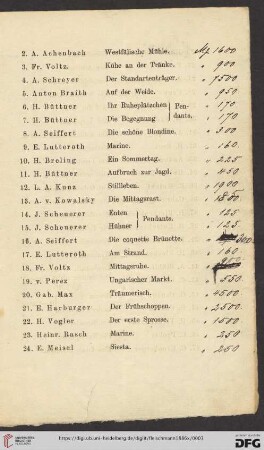 2. A. Achenbach Westfälische Mühle. M 1600
3. Fr. Voltz. Kühe an der Tränke. " 900
4. A. Schreyer Der Standartenträger. " 7500
5. Anton Braith Auf der Weide. " 950
6. H. Büttner Ihr Ruheplätzchen } Pen- " 170
7. H. Büttner Die Begegnung } dants. " 170
8. A. Seiffert Die schöne Blondine. " 300
9. E. Lutteroth Marine. " 160
10. H. Breling Ein Sommertag. " 225
11. H. Büttner Aufbruch zur Jagd. " 450
12. L. A. Kunz Stillleben. " 1900
13. A. v. Kowalsky Die Mittagsrast. "
14. J. Scheuerer Enten } Pendants. " 125
15. J. Scheuerer Hühner } " 125
16. A. Seiffert Die coquette Brünette. " 300
17. E. Lutteroth Am Strand. " 160
18. Fr. Voltz Mittagsruhe. "
19. v. Perez Ungarischer Markt. " 550
20. Gab. Max Träumerisch. " 4500
21. E. Harburger Der Frühschoppen. " 2500.
22. H. Vogler Der erste Sprosse. " 1500
23. Heinr. Rasch Marine. " 250
24. E. Meisel Siesta. " 250
https://digi.ub.uni-heidelberg.de/diglit/fleischmann1886x/0003
DFG